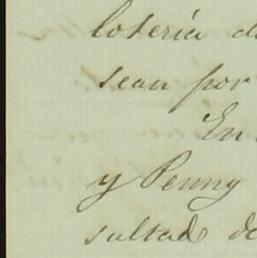 lotería de
sean por
En
y Penny
sultado de